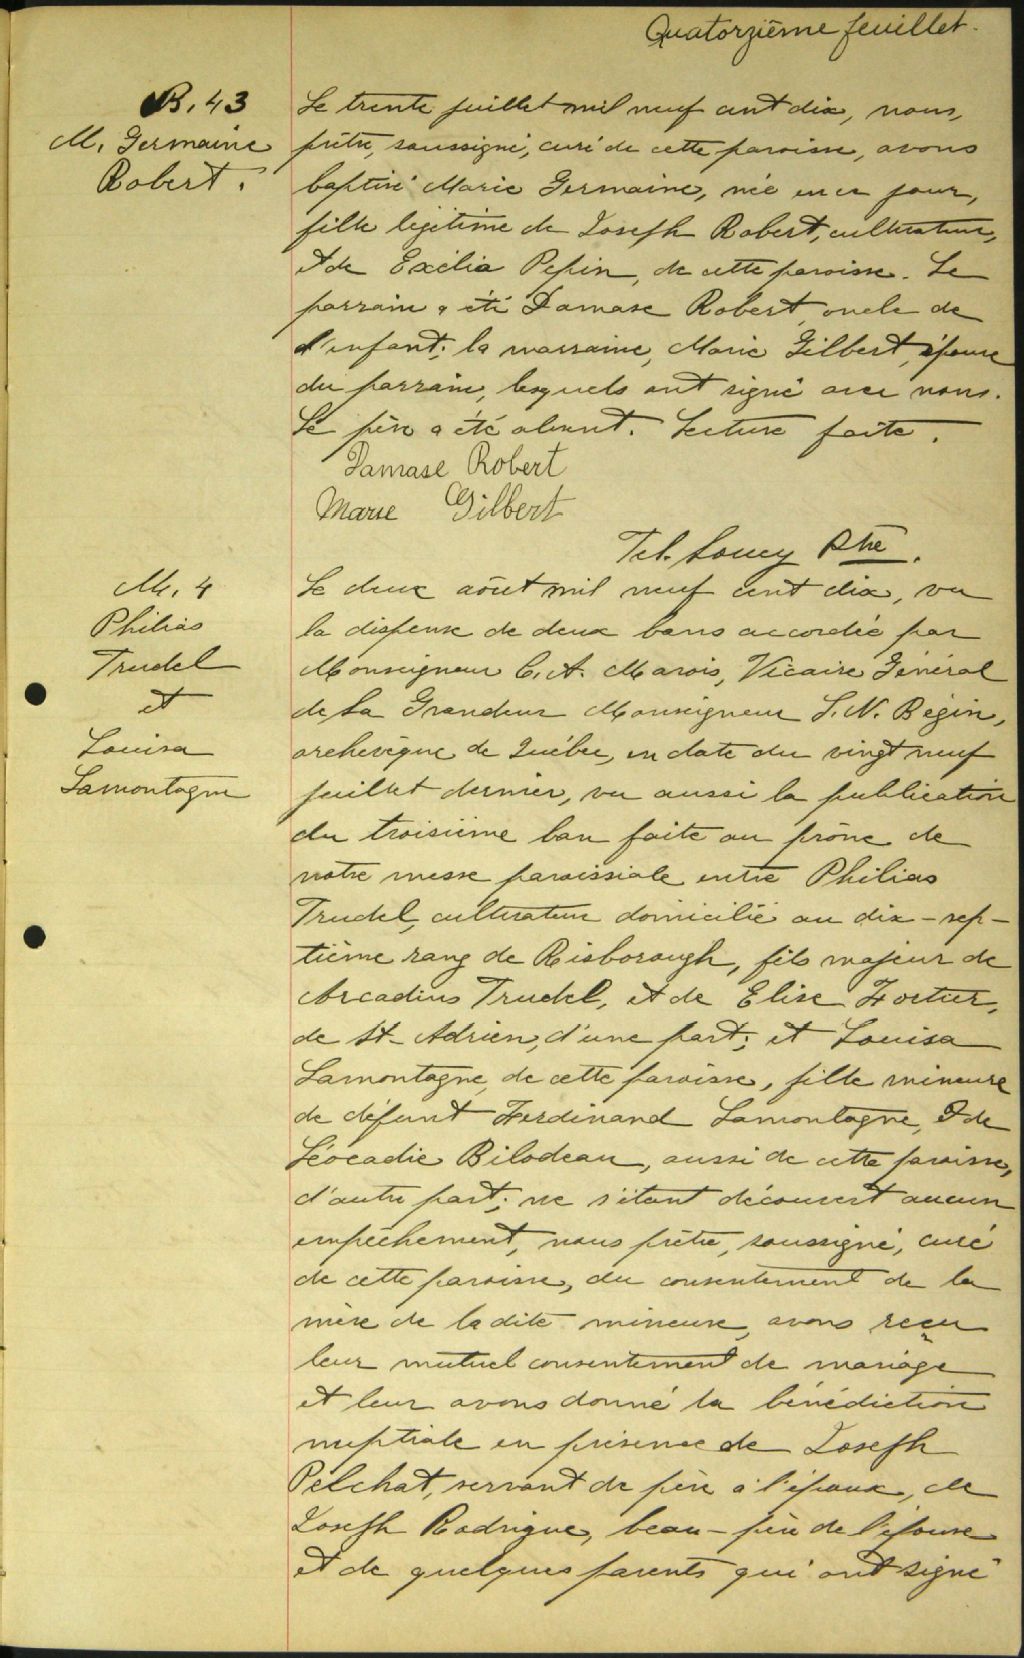 Quatorzième feuillet.
B. 43
M. Germaine
Robert.
Le trente juillet mil neuf cent dix, nous,
prêtre, soussigné, curé de cette paroisse, avons
baptisé Marie Germaine, née en ce jour,
fille légitime de Joseph Robert, cultivateur,
et de Exélia Pepin, de cette paroisse. Le
parrain a été Damase Robert, oncle de
l'enfant; la marraine, Marie Gilbert, épouse
du parrain, lesquels ont signé avec nous.
Le père a été absent. Lecture faite.
Damase Robert
Marie Gilbert
Soucy Ptre.
M. 4
Philias
Trudel
et
Louisa
Lamontagne
Le deux août mil neuf cent dix, vu
la dispense de deux bans accordée par
Monseigneur C. A. Marois, Vicaire Général
de Sa Grandeur Monseigneur L. N. Bégin,
archevêque de Québec, en date du vingt neuf
juillet dernier, vu aussi la publication
du troisième ban faite au prône de
notre messe paroissiale entre Philias
Trudel, cultivateur domicilié au dix-sep-
tième rang de Risborough, fils majeur de
Arcadius Trudel, et de Elise Fortier,
de St-Adrien, d'une part; et Louisa
Lamontagne, de cette paroisse, fille mineure
de défunt Ferdinand Lamontagne, et de
Léocadie Bilodeau, aussi de cette paroisse,
d'autre part; ne s'étant découvert aucun
empêchement, nous prêtre, soussigné, curé
de cette paroisse, du consentement de la
mère de la dite mineure, avons reçu
leur mutuel consentement de mariage
et leur avons donné la bénédiction
nuptiale en présence de Joseph
Pelchat, servant de père à l'époux, de
Joseph Rodrigue, beau-père de l'épouse
et de quelques parents qui ont signé